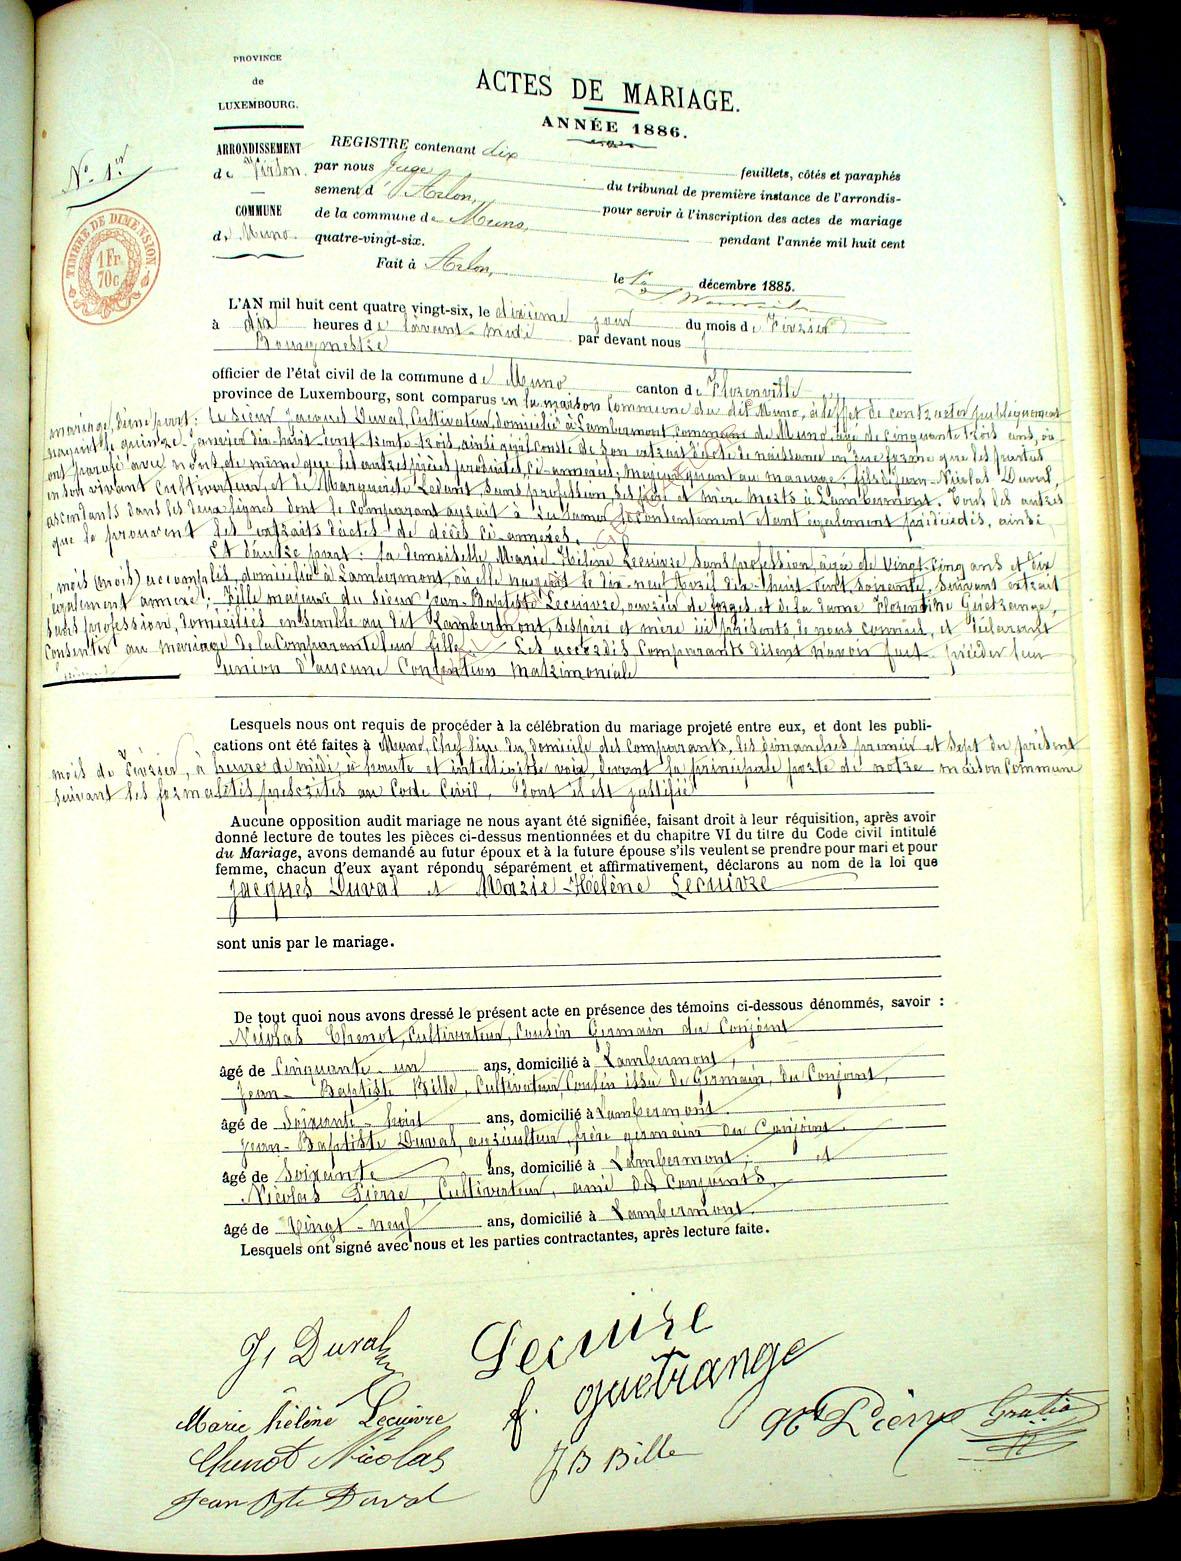 PROVINCE
de
LUXEMBOURG.
ARRONDISSEMENT
de Virton.
COMMUNE
de Muno.
N° 1er
TIMBRE DE DIMENSION
1 Fr.
70 c.
ACTES DE MARIAGE.
ANNÉE 1886.
REGISTRE contenant dix feuillets, côtés et paraphés
par nous Juge du tribunal de première instance de l'arrondis-
sement d'Arlon, pour servir à l'inscription des actes de mariage
de la commune de Muno, pendant l'année mil huit cent
quatre-vingt-six.
Fait à Arlon, le décembre 1885.
L'AN mil huit cent quatre vingt-six, le dixième jour du mois de Février
à dix heures de l'avant-midi par devant nous
Bourgmestre
officier de l'état civil de la commune de Muno canton de Florenville
province de Luxembourg, sont comparus en la maison Commune du dit Muno, à l'effet de contracter publiquement
mariage, d'une part : Le sieur Jacques Duval, Cultivateur, domicilié à Lambermont, commune de Muno, âgé de cinquante trois ans, où
naquit le quinze Janvier dix-huit cent trente trois, ainsi qu'il conste de son extrait d'acte de naissance en due forme que les parties
ont paraphé avec nous, de même que les autres pièces produites, ci-annexées, majeur quant au mariage, fils de Jean-Nicolas Duval,
en son vivant Cultivateur et de Marguerite Ledant, sans profession, ses père et mère morts à Lambermont. Tous les autres
ascendants dans les deux lignes dont le Comparant aurait à réclamer le consentement étant également prédécédés, ainsi
que le prouvent les extraits d'actes de décès ci-annexés.
Et d'autre part : la demoiselle Marie-Hélène Lecuivre, sans profession, âgée de vingt-cinq ans et dix
mois (mois) accomplis, domiciliée à Lambermont, où elle naquit le dix-neuf Avril dix-huit cent soixante, suivant extrait
également annexé ; Fille majeure du sieur Jean-Baptiste Lecuivre, ouvrier de forges et de la dame Florentine Guétrange,
sans profession, domiciliés ensemble au dit Lambermont, ses père et mère ici présents, de nous connus, et déclarant
consentir au mariage de la Comparante leur fille. Les accédés Comparants disent n'avoir fait précéder leur
union d'aucune Convention matrimoniale
Lesquels nous ont requis de procéder à la célébration du mariage projeté entre eux, et dont les publi-
cations ont été faites à Muno, Chef lieu du domicile des Comparants, les dimanches premier et sept du présent
mois de Février, à heure de midi, à haute et intelligible voix, devant la principale porte de notre maison Commune
suivant les formalités prescrites au Code Civil, dont il est justifié
Aucune opposition audit mariage ne nous ayant été signifiée, faisant droit à leur réquisition, après avoir
donné lecture de toutes les pièces ci-dessus mentionnées et du chapitre VI du titre du Code civil intitulé
du Mariage, avons demandé au futur époux et à la future épouse s'ils veulent se prendre pour mari et pour
femme, chacun d'eux ayant répondu séparément et affirmativement, déclarons au nom de la loi que
Jacques Duval et Marie-Hélène Lecuivre
sont unis par le mariage.
De tout quoi nous avons dressé le présent acte en présence des témoins ci-dessous dénommés, savoir :
Nicolas Chenot, Cultivateur, Cousin Germain du Conjoint
âgé de Cinquante-un ans, domicilié à Lambermont,
Jean-Baptiste Bille, Cultivateur, Cousin issu de Germain, du Conjoint,
âgé de Soixante-huit ans, domicilié à Lambermont.
Jean-Baptiste Duval, agriculteur, frère germain du Conjoint.
âgé de Soixante ans, domicilié à Lambermont, et
Nicolas Pierre, Cultivateur, ami des Conjoints,
âgé de Vingt-neuf ans, domicilié à Lambermont.
Lesquels ont signé avec nous et les parties contractantes, après lecture faite.
J, Duval
Lecuivre
Marie hélène Lecuivre
f. guétrange
Chenot Nicolas
J B Bille
Nas Pierre
Gratia
Jean Bte Duval